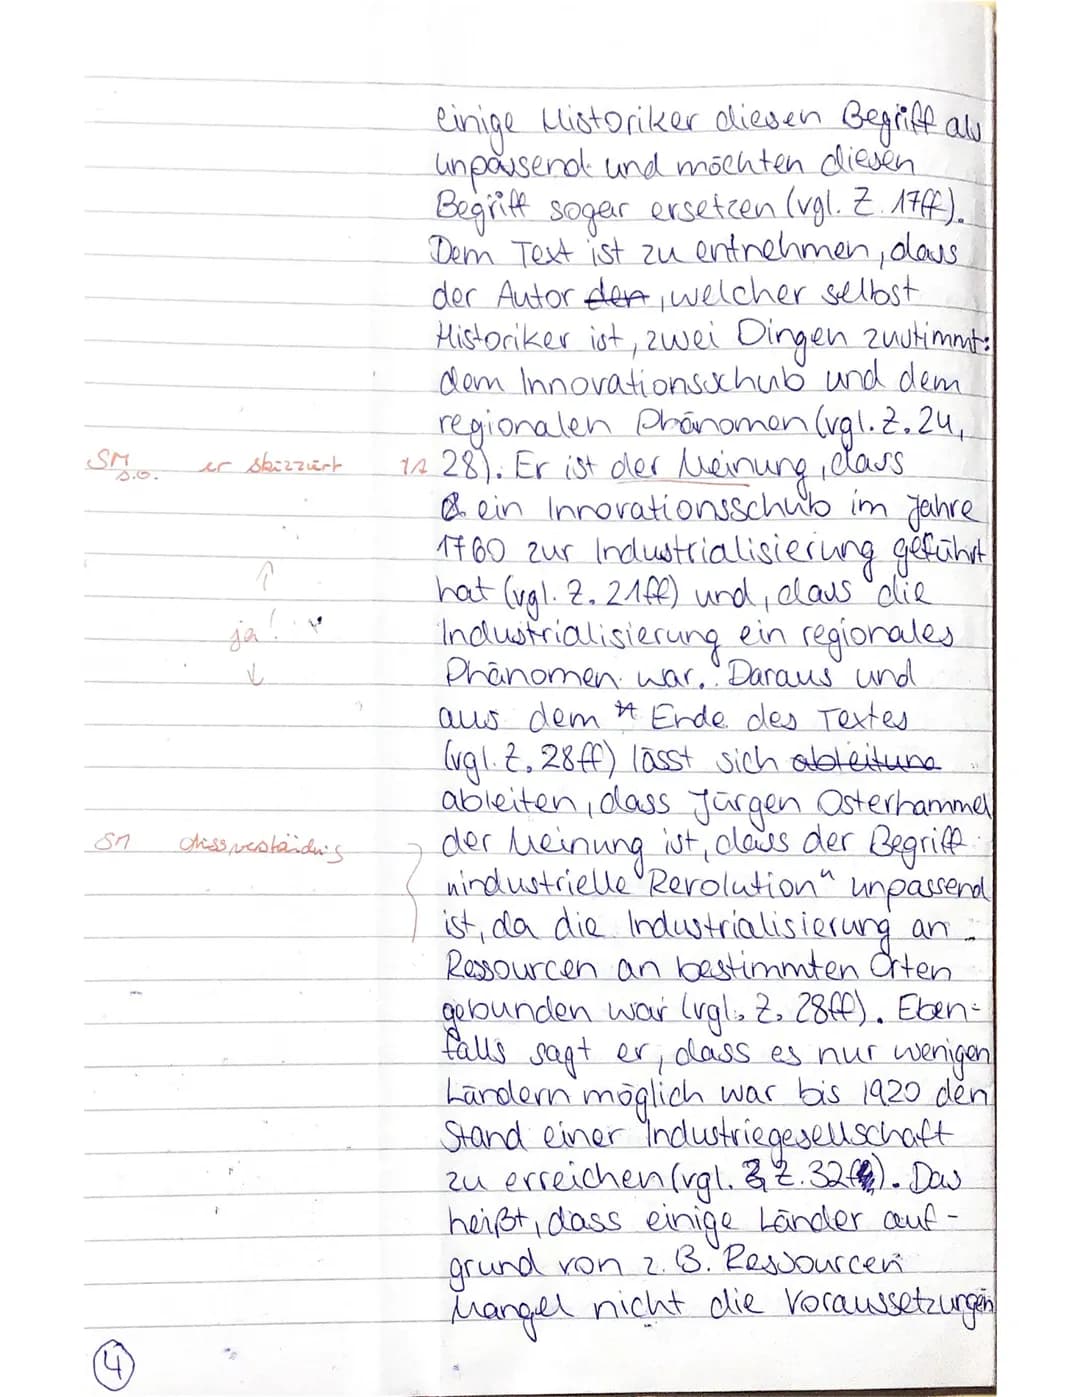 einige Historiker diesen Begriff als
unpassend und möchten diesen
Begriff sogar ersetzen (vgl. Z. 17ff).
Dem Text ist zu entnehmen, dass
der Autor den, welcher selbst
Historiker ist, zwei Dingen zustimmt:
dem Innovationsschub und dem
regionalen Phänomen (vgl. Z. 24,
SM s.o. er skizziert 28). Er ist der Meinung, dass
ein Innovationsschub im Jahre
1760 zur Industrialisierung geführt
hat (vgl. Z. 21ff) und, dass die
ja! Industrialisierung ein regionales
Phänomen war. Daraus und
aus dem Ende des Textes
(vgl. Z. 28ff) lässt sich ableitung
ableiten, dass Jürgen Osterhammel
SM Missverständnis der Meinung ist, dass der Begriff
"industrielle Revolution" unpassend
ist, da die Industrialisierung an
Ressourcen an bestimmten Orten
gebunden war (vgl. Z. 28ff). Eben-
falls sagt er, dass es nur wenigen
Ländern möglich war bis 1920 den
Stand einer Industriegesellschaft
zu erreichen (vgl. Z. 32f). Das
heißt, dass einige Länder auf-
grund von z. B. Ressourcen
Mangel nicht die Voraussetzungen
4